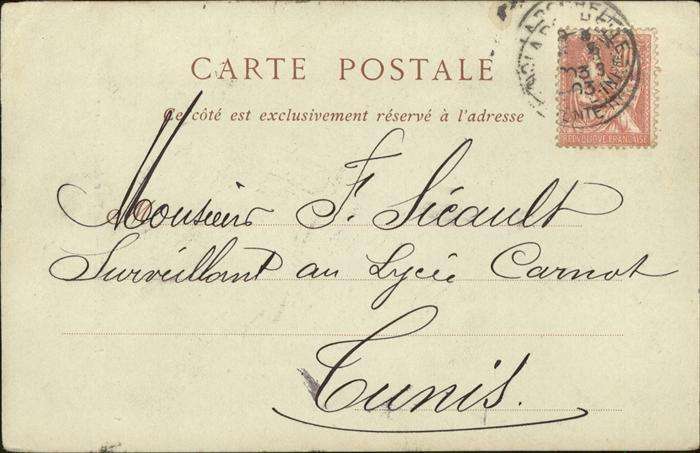 CARTE POSTALE
Ce côté est exclusivement réservé à l'adresse
REPUBLIQUE FRANÇAISE
Monsieur F. Sicault
Surveillant au Lycée Carnot
Tunis.